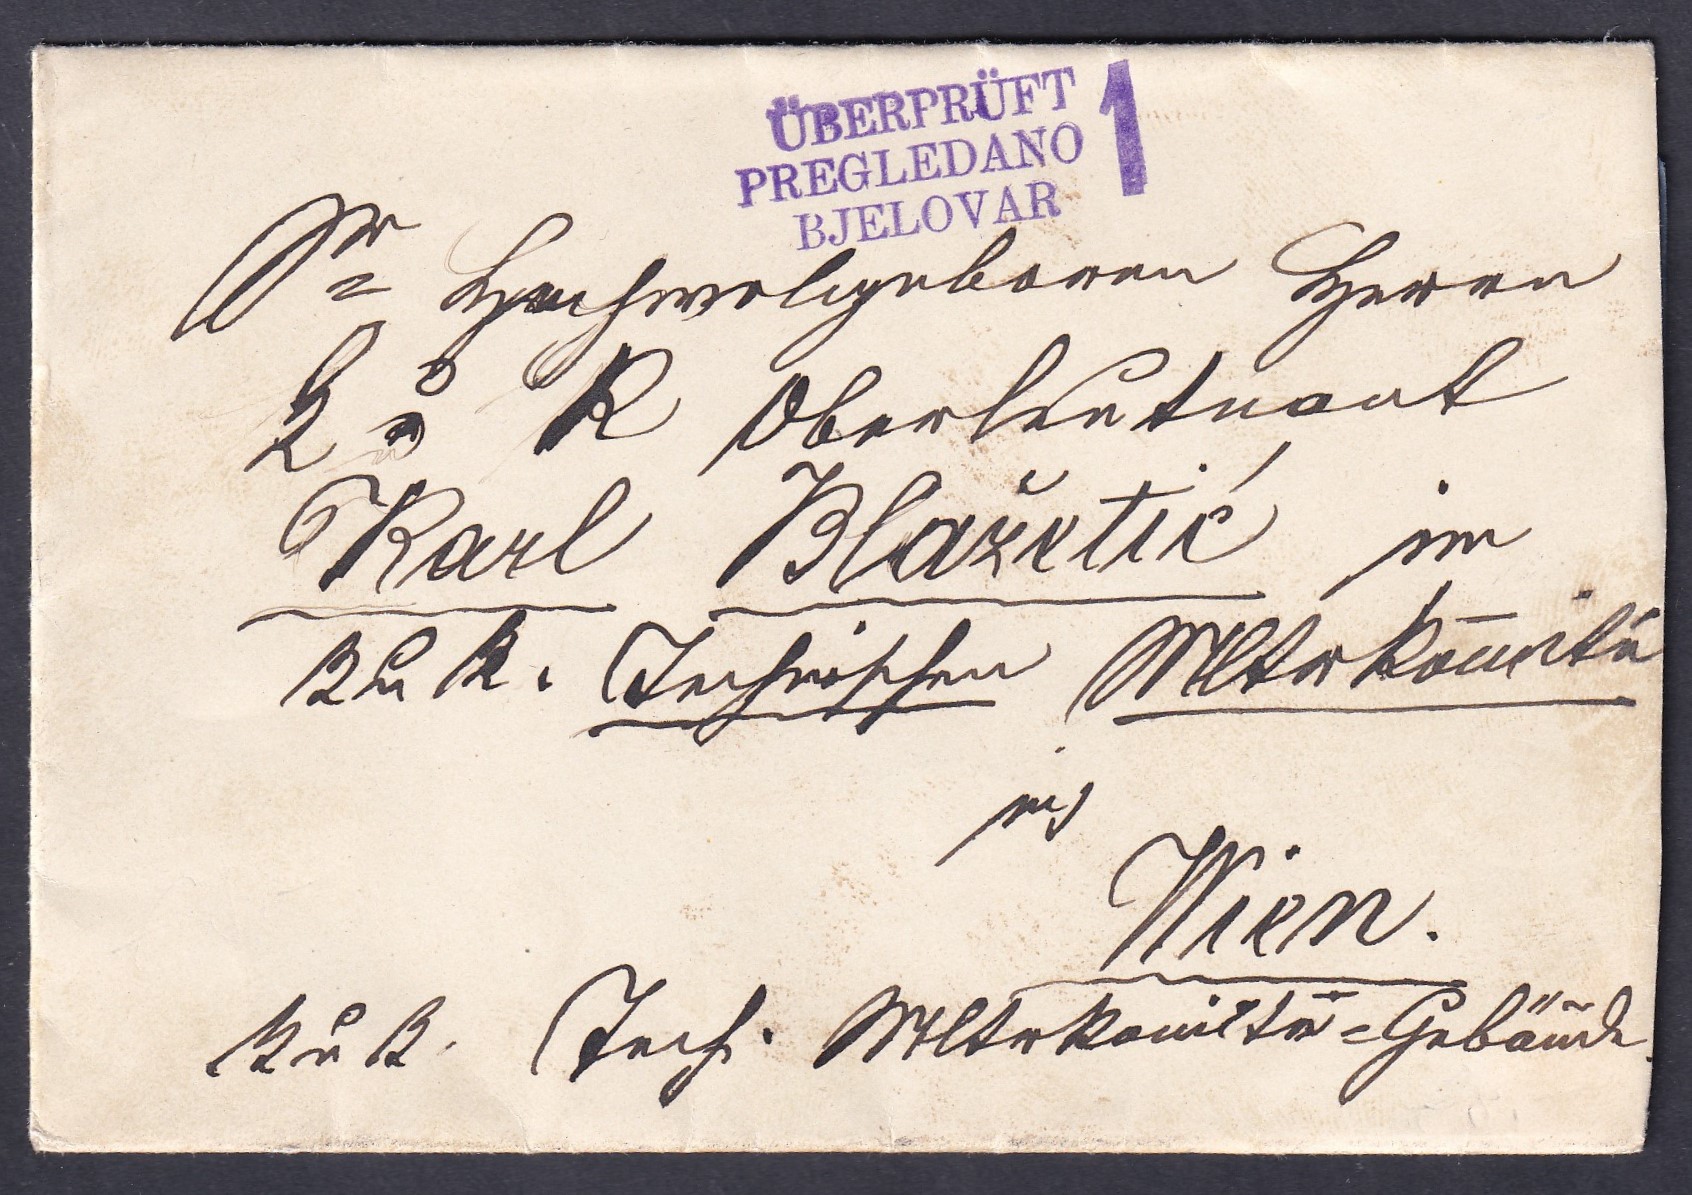 ÜBERPRÜFT 1
PREGLEDANO
BJELOVAR
Sr Hochwolgeboren Herrn
K u K Oberleutnant
Karl Blažetić im
K u K. Technischen Mltrkomité
in
Wien.
K u K. Tech. Mltrkomité=Gebäude